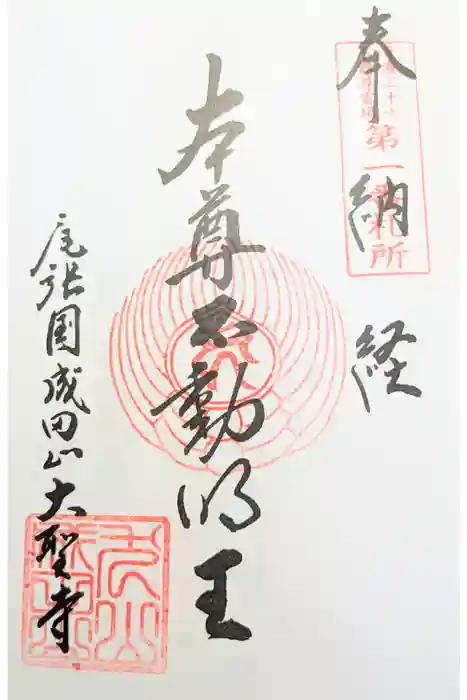 奉納経
第一番札所
本尊不動明王
尾張国成田山大聖寺